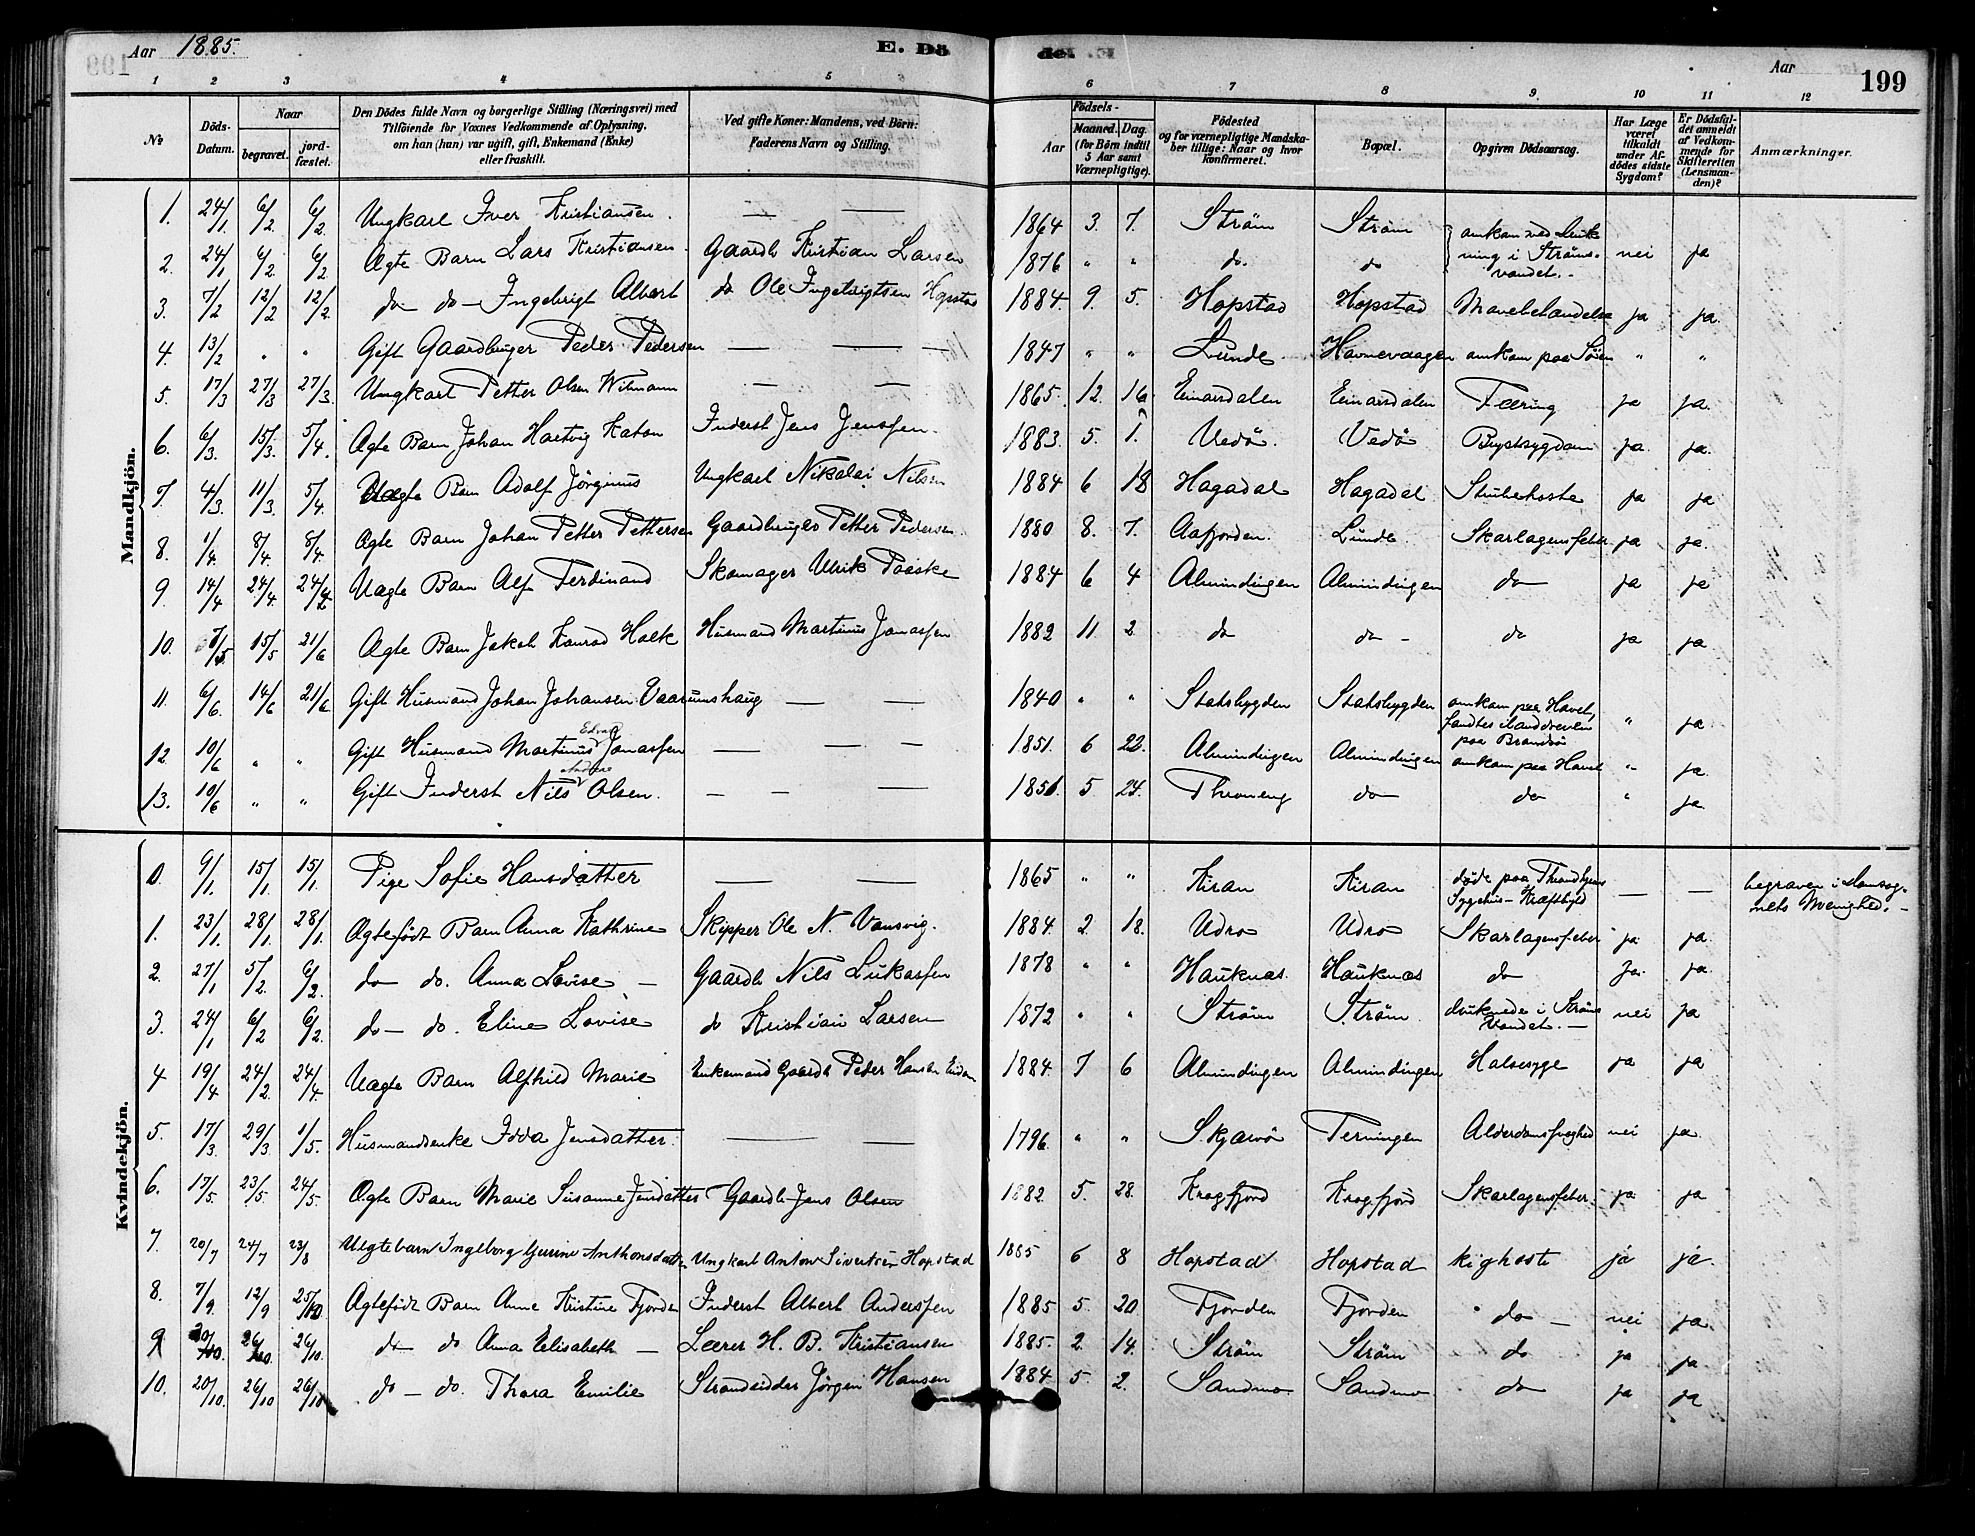 Aar 1885. E. Dö de. Aar 199
1 2 3 4 5 6 7 8 9. 10 11 12
No Döds-Datum. Naar begravet. jord-fæstet. Den Dödes fulde Navn og borgerlige Stilling (Næringsvei) med Tilföiende for Voxnes Vedkommende af Oplysning, om han (hun) var ugift, gift, Enkemand (Enke) eller fraskilt. Ved gifte Koner: Mandens, ved Börn: Faderens Navn og Stilling. Födsels- Aar Maaned. Dag. (for Börn indtil 5 Aar samt Værnepligtige). Födested og for værnepligtige Mandskaber tillige: Naar og hvor konfirmeret. Bopæl. Opgiven Dödsaarsag. Har Læge været tilkaldt under Afdödes sidste Sygdom? Er Dödsfaldet anmeldt af Vedkommende for Skifteretten (Lensmanden)? Anmærkninger.
Mandkjön.
1. 24/1. 6/2. 6/2. Ungkarl Iver Kristiansen. — — 1864 3. 7. Ström Ström omkom ved Drukning i Strömsvandet. nei ja
2. 24/1 6/2. 6/2 Ægte Barn Lars Kristiansen Gaardb Kristian Larsen 1876 " " do. do
3. 7/2 12/2 12/2. do do Ingebrigt Albert do Ole Ingebrigtsen Hopstad 1884. 9. 5. Hopstad Hopstad ja ja.
4. 13/2 " " Gift Gaardbruger Peder Pedersen — — 1847 " " Lunde Havnevaagen omkom paa Söen " "
5. 17/3 27/3 27/3. Ungkarl Petter Olsen — — 1865. 12. 16. Einarsdalen Einarsdalen Tæring ja ja.
6. 6/3. 15/3. 5/4. Ægte Barn Johan Hartvig Inderst Jens Jenssen. 1883. 5. 1. Vedö. Vedö Brystsygdom ja. ja.
7. 4/3. 11/3. 5/4. Uægte Barn Adolf Jörginus Ungkarl Nikolai Nilsen 1884 6 18 Hagadal Hagadal Strubehoste ja ja
8. 1/4. 8/4. 8/4. Ægte Barn Johan Petter Pettersen Gaardbruger Petter Pedersen. 1880 8. 7. Aafjorden. Lunde. Skarlagensfeber ja ja.
9. 14/4 24/4. 24/ Uægte Barn Alf Ferdinand Skomager Ulrik Paaske 1884 6 4 Almindingen Almindingen do ja ja
10. 7/5 15/5 21/6 Ægte Barn Jakob Konrad Husmand Martinus Jonassen 1882 11 2 do do - do ja ja.
11. 6/6. 14/6 21/6 Gift Husmand Johan Johansen — — 1840 " " Statsbygden Statsbygden omkom paa Havet, paa " ja
12. 10/6 " " Gift Husmand Martinus Edvard Jonassen — — 1851. 6 22. Almindingen Almindingen omkom paa Havet " ja
13. 10/6 " " Gift Inderst Nils Andreas Olsen. — — 1856. 5 24. do do " ja.
Kvindekjön.
0. 9/1. 15/1. 15/1. Pige Sofie Hansdatter — — 1865 " " Kiran Kiran døde paa Trondhjems Sygehus — — begraven i
1. 23/1. 28/1. 28/1. Ægtefødt Barn Anna Kathrine Skipper Ole N. Vansvig. 1884. 2. 18. Udro Udro Skarlagensfeber ja ja.
2. 27/1 5/2. 6/2. do do. Anna Lovise — Gaardb Nils Lukassen 1878 " " Hauknæs. Hauknæs do Ja. ja.
3. 24/1 6/2 6/2. do — do. Eline Lovise do Kristian Larsen 1872 " " Ström Ström. druknede i Ströms Vandet. — nei ja
4 19/4 24/2. 24/4. Uægte Barn Alfhild Marie Enkemand Gaardb Peder Hansen 1884. 7 6 Almindingen Almindingen Halssyge ja ja
5. 17/3 29/3. 1/5. Husmandsenke Jensdatter. — — 1796. " " Skjærvö Terningen Alderdomssvaghed nei ja.
6. 17/5. 23/5 24/5. Ægte Barn Marie Susanne Jensdatter Gaardb Jens Olsen 1882. 5. 28. Kragfjord Kragfjord Skarlagensfeber ja ja
7. 20/7 24/7 23/8 Uegtebarn Ingeborg Anthonsdatter Ungkarl Anton Sivertsen Hopstad 1885 6 8 Hopstad Hopstad kighoste ja ja.
8. 7/9. 12/9 25/10 Ægtefødt Barn Anne Kristine Fjorden Inderst Albert Anderssen 1885. 5. 20. Fjorden Fjorden do — nei ja.
9 20/10. 26/10. 26/10. do do Anna Elisabeth — Lærer H. B. Kristiansen 1885. 2. 14. Ström Ström do ja ja
10. 20/10. 26/10 26/10 do — do. Thora Emilie Strandsidder Jörgen Hansen 1884. 5. 2. Sandmo Sandmo do ja ja